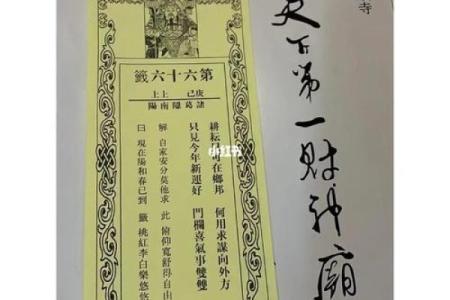 寺
天下第一財神廟
第六十六籤
庚己 上上
諸葛隱南陽
耕耘可在鄉邦 何用求謀向外方
只見今年新運好 門欄喜氣事雙雙
解 自家安分莫他求 此 俯仰寬舒得自由
曰 現在陽和春已到 籤 桃紅李白樂悠悠
小红书